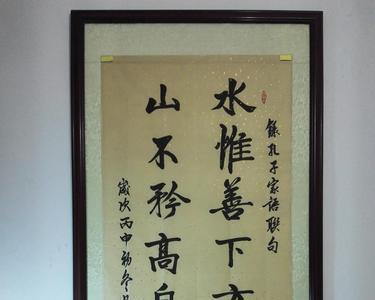 錄孔子家語聯句
水惟善下方
山不矜高自
歲次丙申初冬